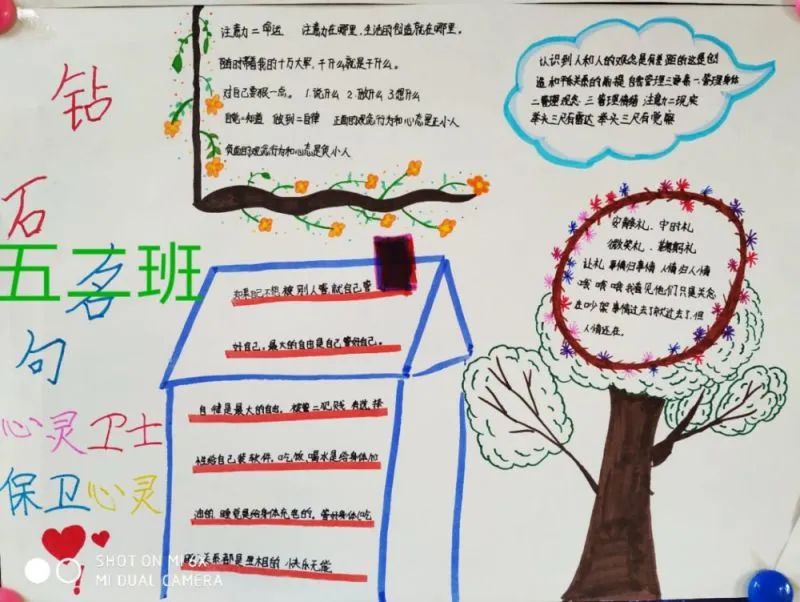 钻
石
名
句
五二班
心灵卫士
保卫心灵
注意力=命运 注意力在哪里,生活的创造就在哪里。
随时带着我的十万大军,干什么就是干什么。
对自己要狠一点。1.说什么 2.做什么 3.想什么
自觉=知道 做到=自律 正面的观念行为和心态是正小人
负面的观念行为和心态是负小人
认识到人和人的观念是有差距的这是创
造和平关系的前提 自我管理三要素一.管理身体
二管理观念 三管理情绪 注意力=现实
举头三尺有雷达 举头三尺有觉察
安静礼、守时礼
微笑礼、鞠躬礼
让礼 事情归事情 人情归人情
哦 哦 哦我看见他们只是关
在吵架 事情过去了就过去了.但
人情还在。
如果自己不想被别人管,就自己管
好自己,最大的自由是自己管好自己。
自律是最大的自由, 被管=犯贱 有选择
性给自己装软件,吃饭、喝水是给身体加
油的 睡觉是给身体充电的, 管好身体(吃
关系都是互相的 快乐无能
SHOT ON MI 6X
MI DUAL CAMERA